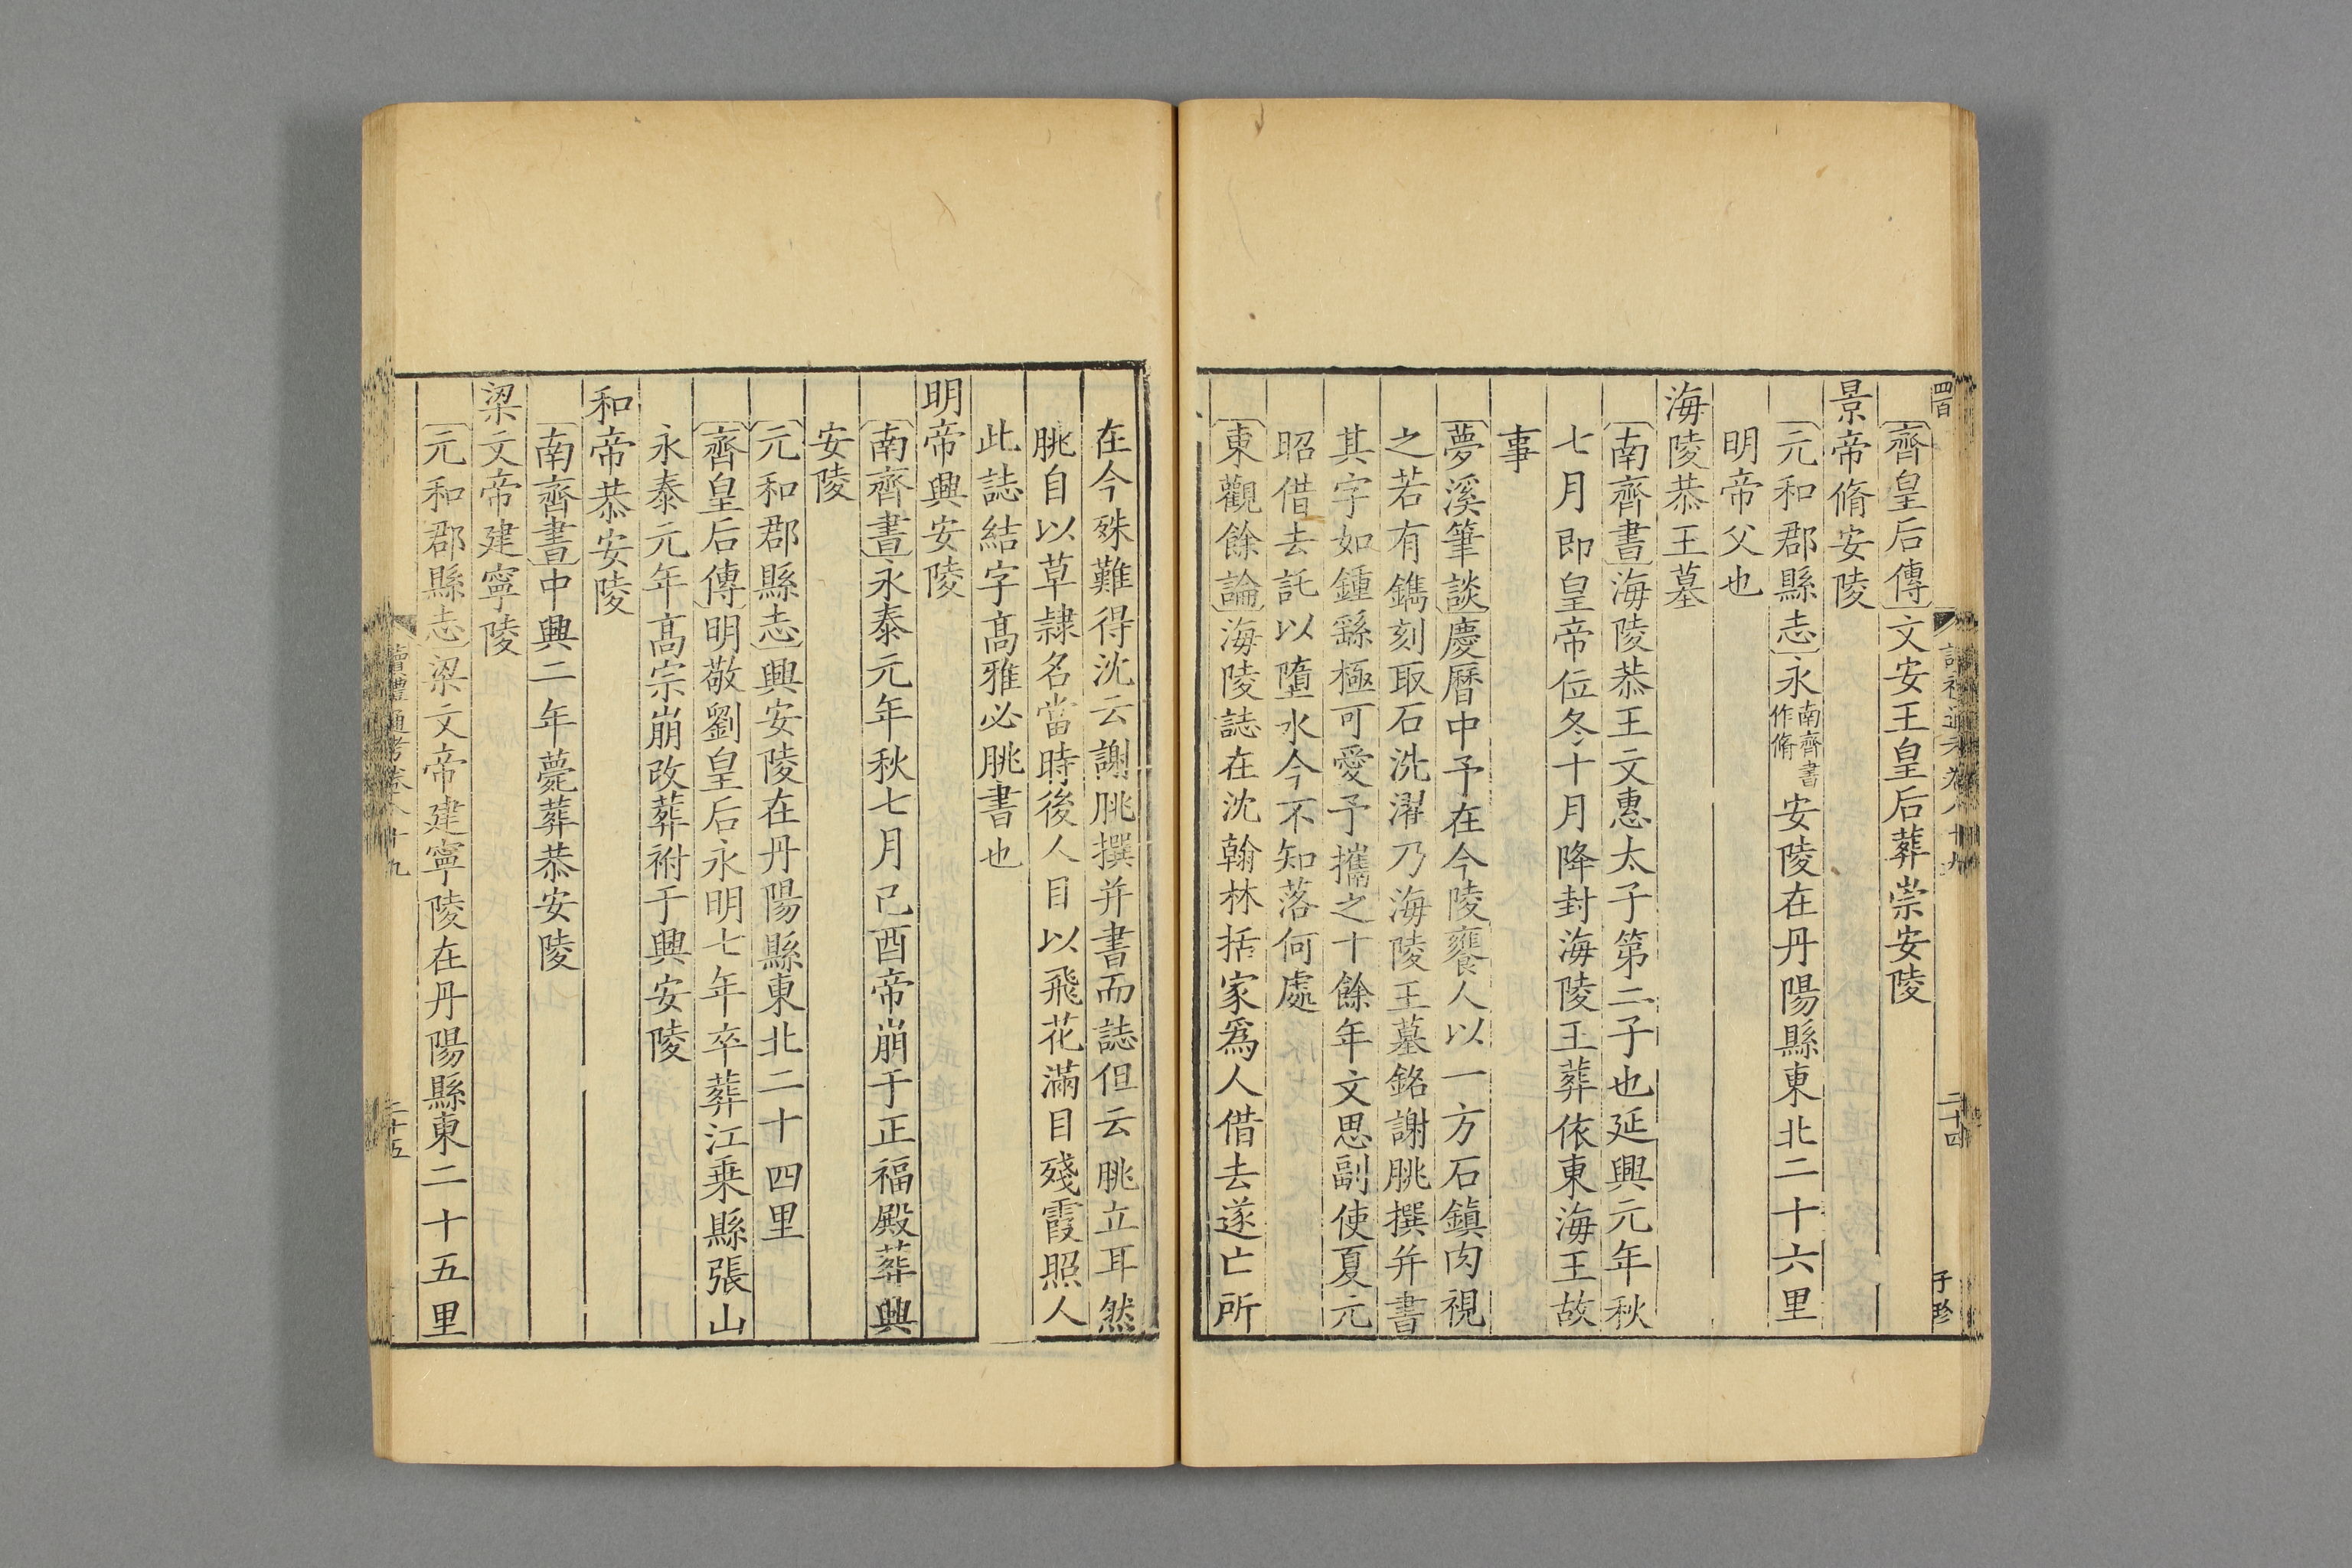 四百
讀禮通考卷八十九
二十四
子珍
〔齊皇后傳〕文安王皇后葬崇安陵
景帝脩安陵
〔元和郡縣志〕永南齊書作脩安陵在丹陽縣東北二十六里
明帝父也
海陵恭王墓
〔南齊書〕海陵恭王文惠太子第二子也延興元年秋
七月即皇帝位冬十月降封海陵王葬依東海王故
事
〔夢溪筆談〕慶曆中予在今陵饔人以一方石鎮肉視
之若有鐫刻取石洗濯乃海陵王墓銘謝朓撰并書
其字如鍾繇極可愛予攜之十餘年文思副使夏元
昭借去託以墮水今不知落何處
〔東觀餘論〕海陵誌在沈翰林括家爲人借去遂亡所
在今殊難得沈云謝朓撰并書而誌但云朓立耳然
朓自以草隷名當時後人目以飛花滿目殘霞照人
此誌結字髙雅必朓書也
明帝興安陵
〔南齊書〕永泰元年秋七月己酉帝崩于正福殿葬興
安陵
〔元和郡縣志〕興安陵在丹陽縣東北二十四里
〔齊皇后傳〕明敬劉皇后永明七年卒葬江乗縣張山
永泰元年髙宗崩改葬祔于興安陵
和帝恭安陵
〔南齊書〕中興二年薨葬恭安陵
梁文帝建寧陵
〔元和郡縣志〕梁文帝建寧陵在丹陽縣東二十五里
讀禮通考卷八十九
二十五